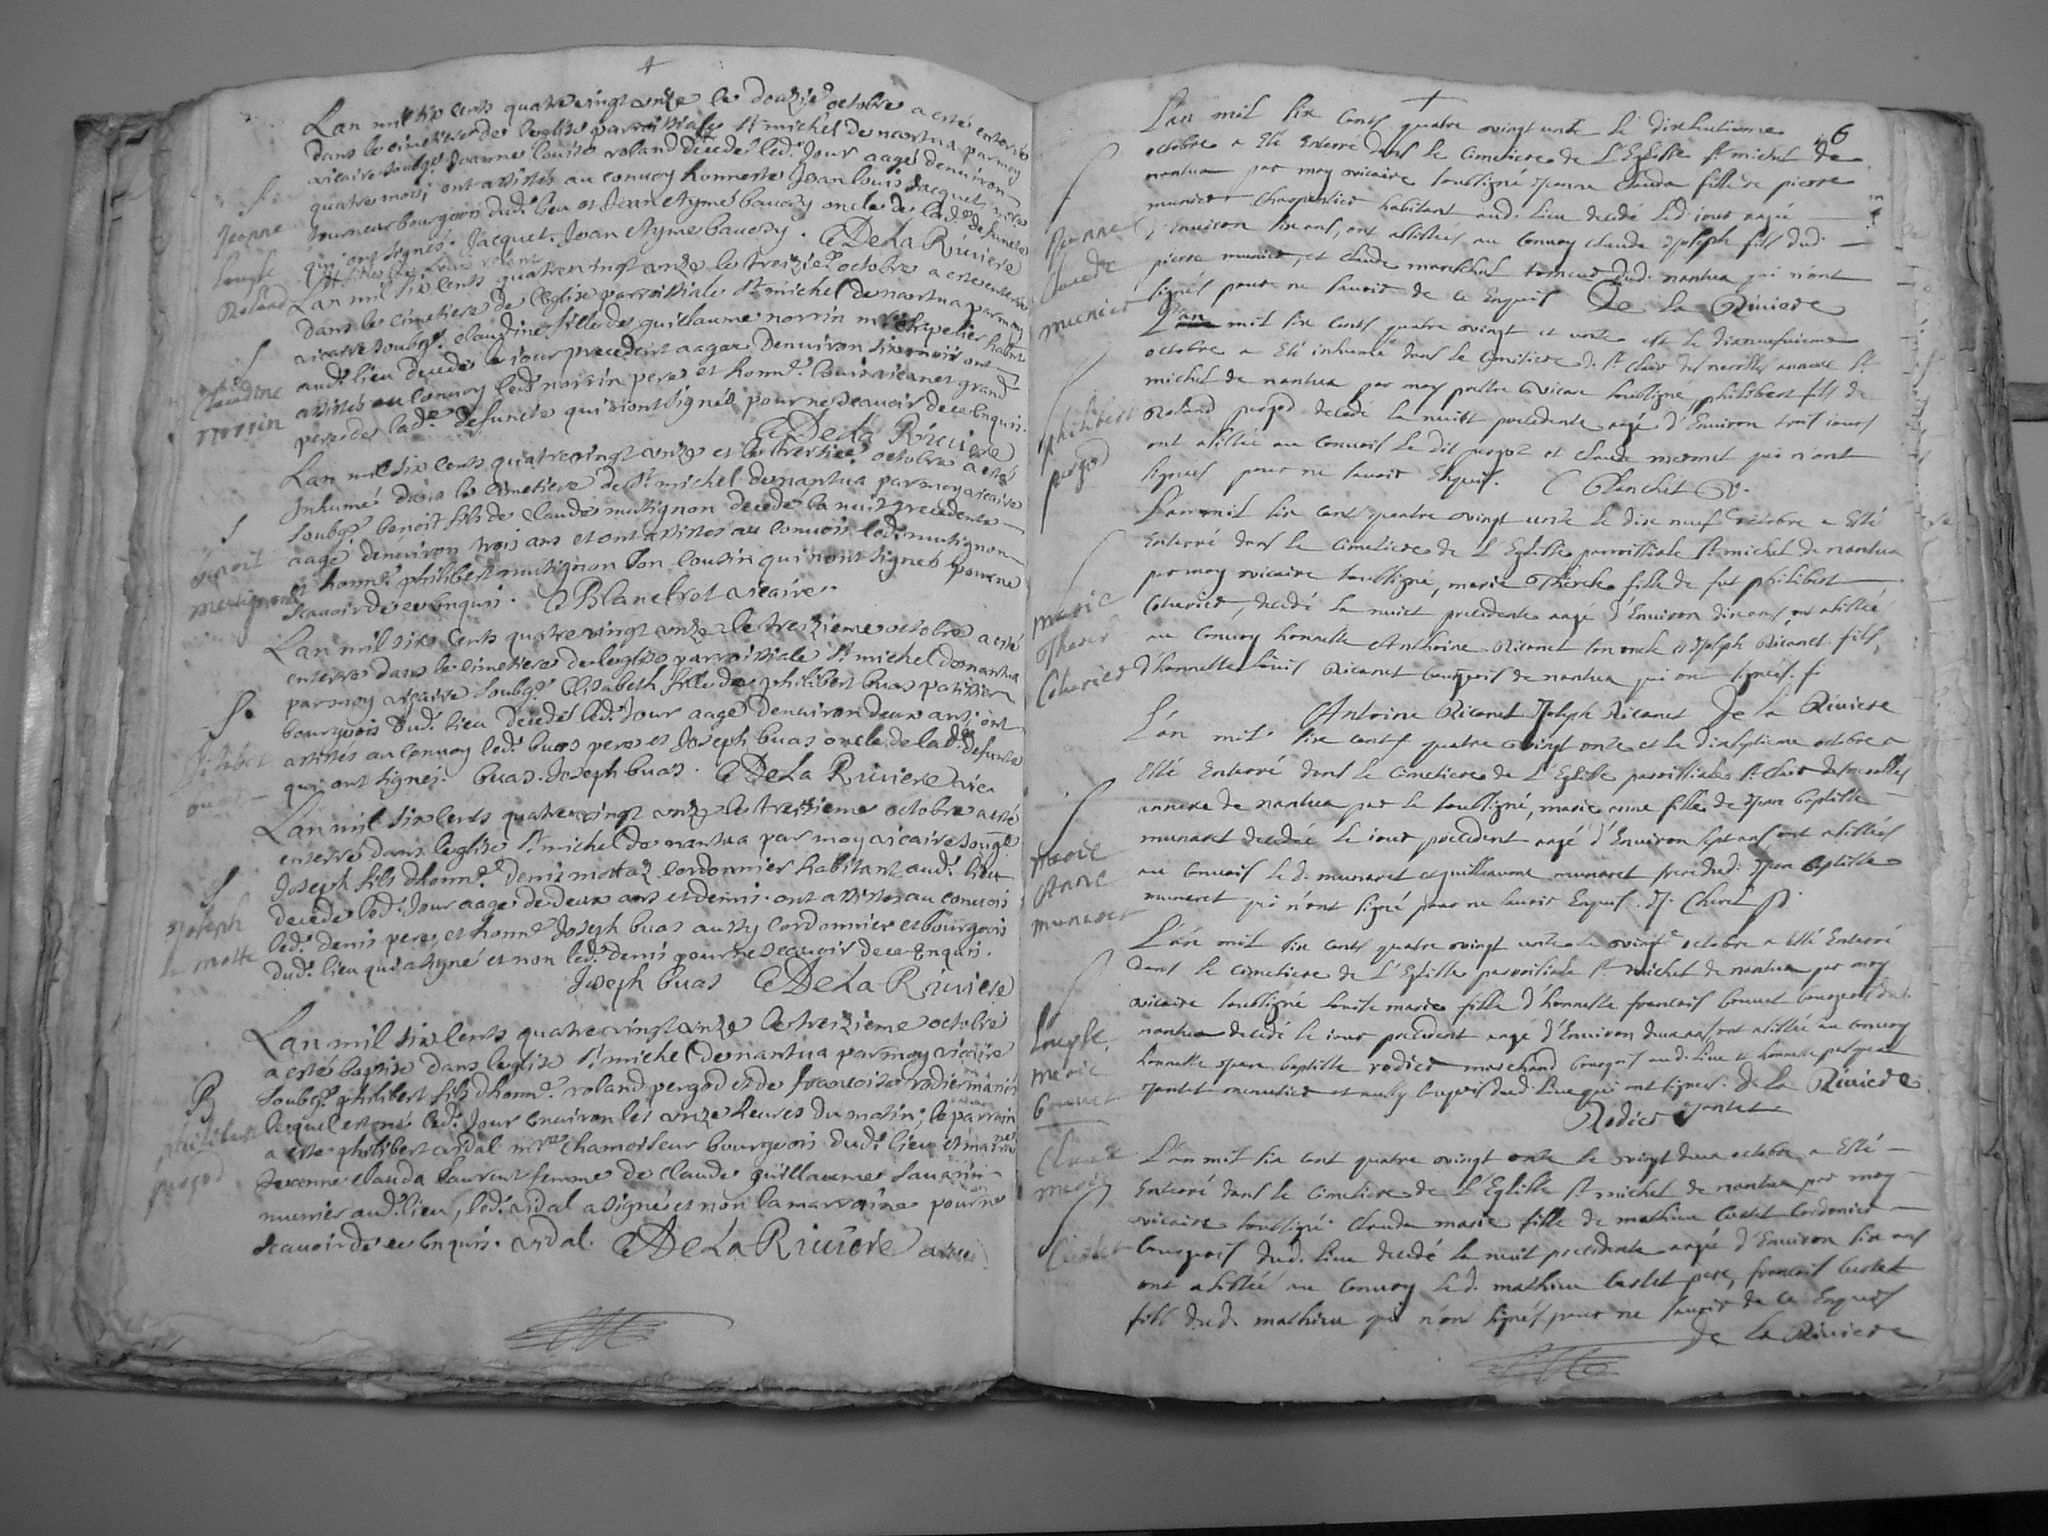 Lan mil six cents quatrevingt unze le douzie octobre a esté enterré
dans le cimetiere de leglise parroissiale St michel de nantua par moy
vicaire soubge Jeanne louise roland decedée led. Jour aagé denviron
quatre mois, ont assistés au convoy honneste Jean louis Jacquet mre
tourneur bourgeois dud. lieu et Jean Ayme baudry oncle de lad. defuncte
qui ont signés. Jacquet. Jean Ayme baudry. DeLa Riviere
Jeanne
Louyse
Roland
Lan mil six cents quatrevingt unze le treizie octobre a esté enterré
dans le cimetiere de leglise parroissiale St michel de nantua par moy
vicaire soubge. claudine fille de guillaume norrin mre chapelier habitant
aud. lieu decedée le jour precedent aagée denviron six mois ont
assistés au convoy led. norrin pere et honne. louis ricanet grand
pere de lad. defuncte qui n'ont signés pour ne scavoir de ce enquis.
DeLa Riviere
Claudine
norrin
Lan mil six cents quatrevingt unze et le treizie octobre a esté
Inhumé dans le cimetiere de St michel de nantua par moy vicaire
soubge. benoit fils de claude mutignon decedé la nuit precedente
aagé denviron trois ans et ont assistés au convois led. mutignon
et honne. philibert mutignon son cousin qui n'ont signés pour ne
scavoir de ce enquis. Blanchet vicaire.
benoit
mutignon
Lan mil six cents quatrevingt unze le treizieme octobre a esté
enterré dans le cimetiere de leglise parroissiale St michel de nantua
par moy vicaire soubge. Elisabeth fille de philibert buas patissier
bourgeois dud. lieu decedée led. Jour aagé denviron deux ans; ont
assistés au convoy led. buas pere et Joseph buas oncle de lad. defuncte
qui ont signés. buas. Joseph buas. DeLa Riviere vica
Lan mil six cents quatrevingt unze le treizieme octobre a esté
enterré dans leglise St michel de nantua par moy vicaire soubge
Joseph fils dhonne. denis mottaz cordonnier habitant aud. lieu
decedé led. Jour aagé de deux ans et demi. ont assistés au convois
led. denis pere, et honne. Joseph buas aussy cordonnier et bourgeois
dud. lieu qui a signé et non led. denis pour ne scavoir de ce Enquis.
Joseph buas DeLa Riviere
Joseph
motta
Lan mil six cents quatrevingt unze le treizieme octobre
a esté baptisé dans leglise St michel de nantua par moy vicaire
soubge. philibert fils dhonne. roland pergod et de françoise rodier mariés
lequel est né led. Jour environ les unze heures du matin; le parrain
a esté philibert vidal mre chamoiseur bourgeois dud. lieu et marraine
Jeanne clauda laurent femme de claude guillaume savarin
munier aud. lieu, led. vidal a signé et non la marraine pour ne
scavoir de ce enquis. vidal. DeLa Riviere vicaire
B
philibert
pergod
6
L'an mil six cents quatre vingt unze le dixhuitieme
octobre a Esté Enterré dans le cimetiere de L'Eglise St michel de
nantua par moy vicaire soubsigné Jeanne Clauda fille de pierre
munier Charpentier habitant aud. lieu decedé led. iour aagée
d'Environ six ans, ont assistés au Convoy claude Joseph fils dud.
pierre munier, et claude mareschal torneur dud. nantua qui n'ont
signés pour ne savoir de ce Enquis De la Riviere
Jeanne
Claude
munier
L'an mil six cents quatre vingt et unze et le dixneufvieme
octobre a Eté inhumé dans le Cimetiere de St Clair des nerolles annexe St
michel de nantua par moy prestre vicaire soubsigné, philibert fils de
Roland pergod decedé la nuitt precedente aagé d'Environ trois iours
ont assistée au convois le dit pergod et claude mermet qui n'ont
signés pour ne savoir Enquis. Blanchet V.
philibert
pergod
L'an mil six cent quatre vingt unze le dix neuf octobre a Esté
Enterré dans le cimetiere de L'Eglise parroissiale St michel de nantua
par moy vicaire soubsigné, marie Therese fille de fut philibert
Coturier, decedé la nuict precedente aagé d'Environ dix ans, ont assistée
au Convoy honneste Anthoine Ricanet son oncle et Joseph Ricanet fils,
d'honneste Louis Ricanet bourgeois de nantua qui ont signés.
Antoine Ricanet Joseph Ricanet De la Riviere
marie
Therese
Coturier
L'an mil six cents quatre vingt onze et le dixseptieme octobre a
Esté Enterré dans le Cimetiere de L'Eglise parroissiale St Clair de nerolles
annexe de nantua par le soubsigné, marie anne fille de Jean baptiste
munaret decedée le iour precedent aagé d'Environ sept ans, ont assistés
au convois le d. munaret et guilliaume munaret frere dud. Jean Baptiste
munaret qui n'ont signé pour ne savoir Enquis.
marie
Anne
munaret
L'an mil six cents quatre vingt unze le vingt octobre a Esté Enterré
dans le cimetiere de L'Eglise parroissiale St michel de nantua par moy
vicaire soubsigné Louise marie fille d'honneste francois bonnet bourgeois dud.
nantua decedé le iour precedent aagé d'Environ deux ans, ont assistée au convoy
honneste Jean baptiste rodier marchand bourgeois aud. lieu et honneste
Jantet menusier et aussy bourgeois dud. lieu qui ont signés. De la Riviere
Rodier Jantet
Louyse
marie
bonnet
L'an mil six cent quatre vingt onze le vingt deux octobre a Esté
Enterré dans le Cimetiere de L'Eglise St michel de nantua par moy
vicaire soubsigné. Clauda marie fille de mathieu Curtet Cordonier
bourgeois dud. lieu decedé la nuit precedente aagée d'Environ six ans
ont assistée au Convoy le d. mathieu Curtet pere, francois Curtet
fils dud. mathieu qui n'ont signés pour ne savoir de ce Enquis
De La Riviere
Claude
marie
Curtet